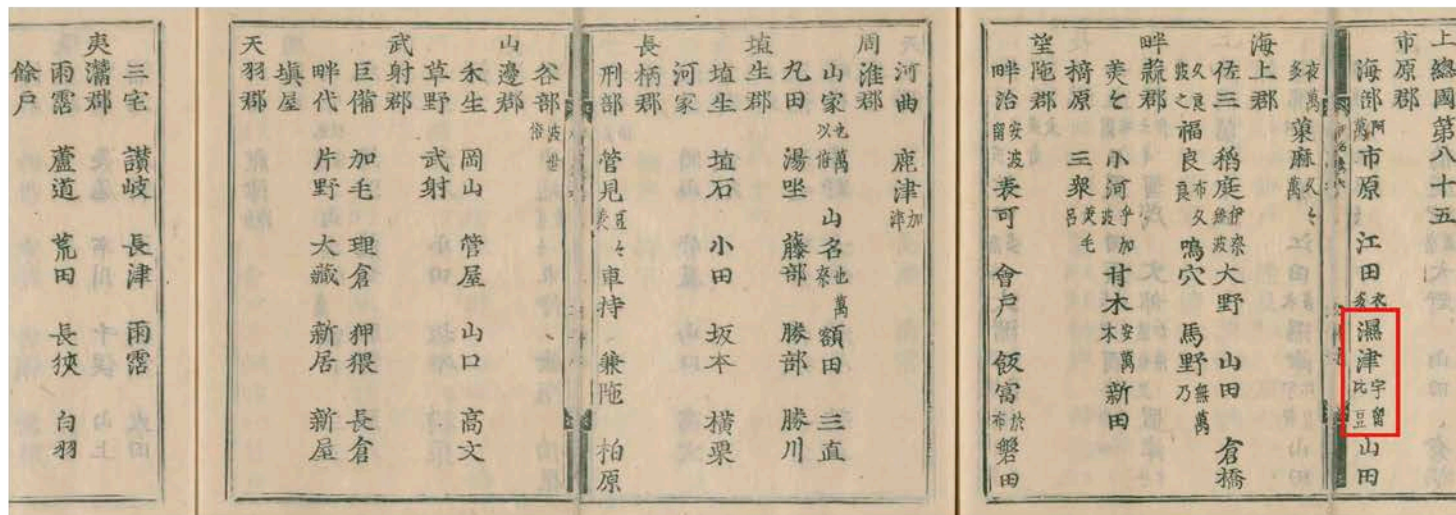 上總國第八十五
市原郡
海部阿萬市原 江田衣多濕津宇留比豆山田
菓麻久々萬
海上郡
佐三 稻庭伊奈 大野 山田 倉橋
福良布久良 鳴穴 馬野無萬乃
畔蒜郡
小河乎加波甘木安萬木新田
三衆
望陁郡
畔治安波留 㐮可 會戶 飯富於布磐田
河曲 鹿津加津
周淮郡
山家也萬以俗 山名也萬奈額田 三直
九田 湯坐 藤部 勝部 勝川
埴生郡
埴生 埴石 小田 坂本 橫栗
河家
長柄郡
刑部 管見 車持 兼陁 柏原
谷部
山邊郡
禾生 岡山 管屋 山口 高文
草野 武射
武射郡
巨備 加毛 理倉 狎猥 長倉
畔代 片野 大藏 新居 新屋
塡屋
天羽郡
三宅 讃岐 長津 雨霑
夷灊郡
雨霑 蘆道 荒田 長狹 白羽
餘戶